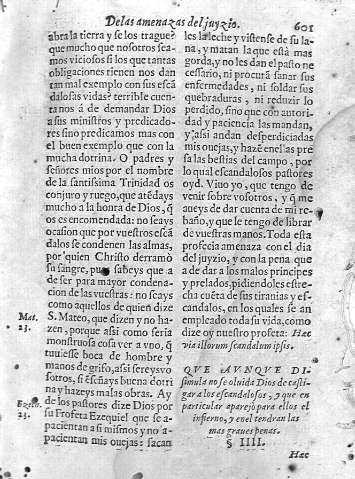 De las amenazas del juyzio.
601
abra la tierra y se los trague?
que mucho que nosotros sea-
mos viciosos si los que tantas
obligaciones tienen nos dan
tan mal exemplo con sus escã
dalosas vidas? terrible cuen-
ta nos á de demandar Dios
a sus ministros y predicado-
res sino predicamos mas con
el buen exemplo que con la
mucha dotrina. O padres y
señores mios por el nombre
de la santissima Trinidad os
conjuro y ruego, que atẽdays
mucho a la honra de Dios, q̃
os es encomendada: no seays
ocasion que por vuestros escã
dalos se condenen las almas,
por quien Christo derramò
su sangre, pues sabeys que a
de ser para mayor condena-
cion de las vuestras: no seays
como aquellos de quien dize
Mat.
23.
S. Mateo, que dizen y no ha-
zen, porque assi como seria
monstruosa cosa ver a vno, q̃
tuuiesse boca de hombre y
manos de grifo, assi sereys vo-
sotros, si ẽseñays buena dotri
na y hazeys malas obras. Ay
de los pastores dize Dios por
su Profeta Ezequiel que se a-
pacientan a si mismos y no a-
pacientan mis ouejas: sacan
les la leche y vistense de su la-
na, y matan la que està mas
gorda, y no les dan el pasto ne
cessario, ni procurã sanar sus
enfermedades, ni soldar sus
quebraduras, ni reduzir lo
perdido, sino que con autori-
dad y paciencia las mandan,
y assi andan desperdiciadas
mis ouejas, y hazẽnelas pre
sa las bestias del campo, por
lo qual escandalosos pastores
oyd. Viuo yo, que tengo de
venir sobre vosotros, y q̃ me
aueys de dar cuenta de mi re-
baño, y que le tengo de librar
de vuestras manos. Toda esta
profecia amenaza con el dia
del juyzio, y con la pena que
a de dar a los malos principes
y prelados, pidiendoles estre-
cha cuẽta de sus tiranias y es-
candalos, en los quales se an
empleado toda su vida, como
dize oy nuestro profeta: Hæc
via illorum scandalum ipsis.
QVE AVNQVE DI-
simula no se olvida Dios de casti-
gar a los escandalosos, y que en
particular aparejò para ellos el
infierno, y en el tendran las
mas graues penas.
§ IIII.
Hæc